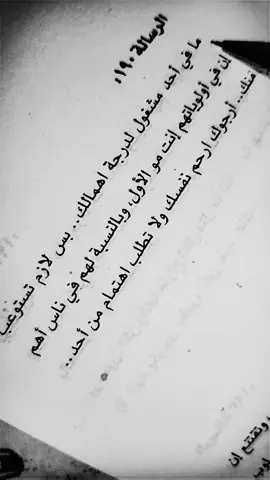 الرسالة ١٩٠:
ما في أحد مشغول لدرجة اهمالك.. بس لازم تستوعب
إن في أولوياتهم إنت مو الأول، وبالنسبة لهم في ناس أهم
منك.. أرجوك ارحم نفسك ولا تطلب اهتمام من أحد..
وتقتنع إن